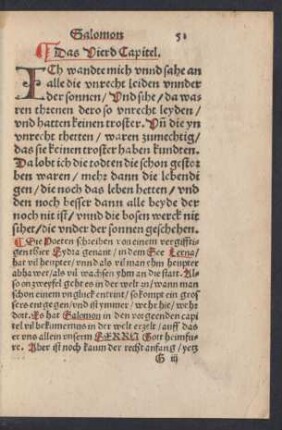 Salomon 51
Das Vierd Capitel.
ICh wandte mich vnnd sahe an
alle die vnrecht leiden vnnder
der sonnen / Vnd sihe / da wa
ren threnen dero so vnrecht leyden /
vnd hatten keinen troster. Vñ die yn
vnrecht thetten / waren zumechtig /
das sie keinen troster haben kundten.
Da lobt ich die todten die schon gestor
ben waren / mehr dann die lebendi
gen / die noch das leben hetten / vnd
den noch besser dann alle beyde der
noch nit ist / vnnd die bosen werck nit
sihet / die vnder der sonnen geschehen.
Die Poeten schreiben von einem vergiffti
gen thier Hydra genant / in dem See Lerna /
hat vil heupter / vnnd als man yhm heupter
abhawet / als vil wachsen yhm an die statt. Al
so on zweyfel geht es in der welt zu / wann man
schon einem vnglück entrint / so kompt ein gros
sers entgegen / vnd ist ymmer / we hie / we
dort. Es hat Salomon in den vorgeenden capi
tel vil bekumernus in der welt erzelt / auff das
er vns allein vnserm HERRN Gott heimfu
re. Aber ist noch kaum der recht anfang / yetz
G iij